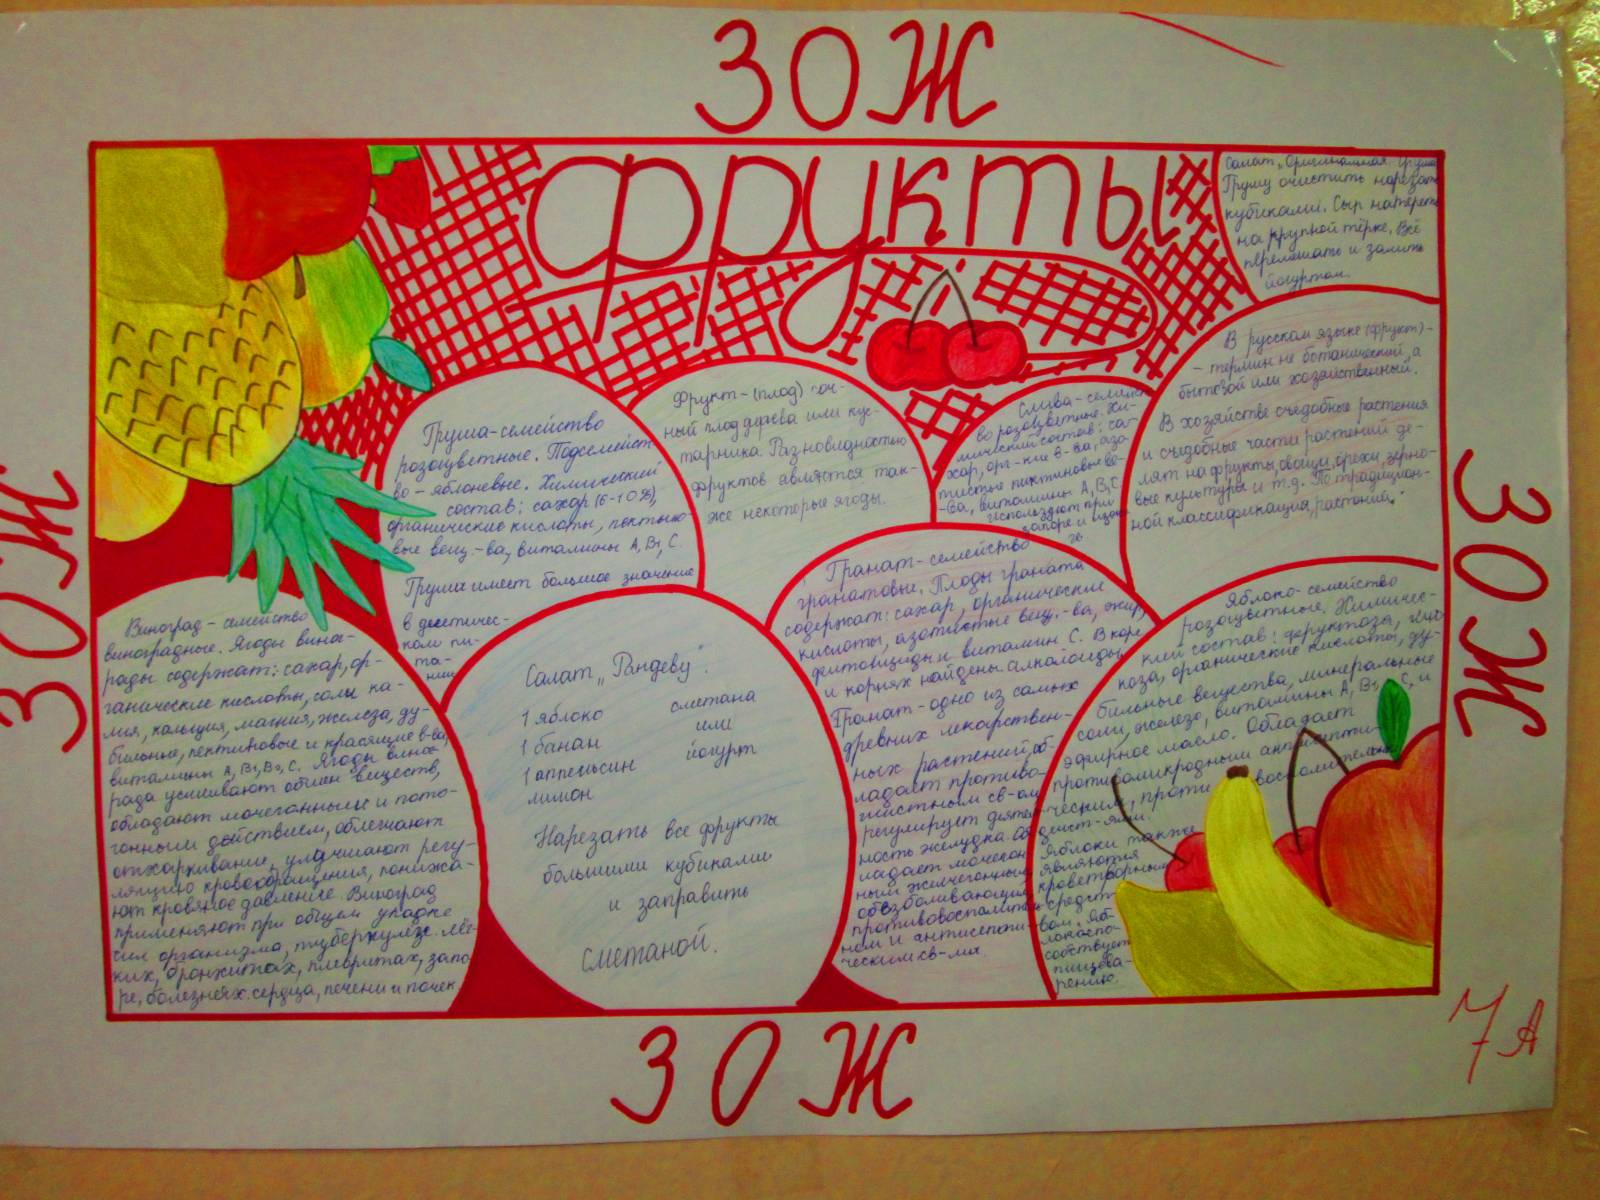 ЗОЖ
фрукты
ЗОЖ
ЗОЖ
ЗОЖ
7 А
Салат „Оригинальная груша"
Грушу очистить нарезать
кубиками. Сыр натереть
на крупной тёрке. Всё
перемешать и залить
йогуртом.
В русском языке (фрукт) -
- термин не ботанический, а
бытовой или хозяйственный.
В хозяйстве съедобные растения
и съедобные части растений де-
лят на фрукты, овощи, орехи, зерно-
вые культуры и т.д. По традицион-
ной классификации растений.
Груша - семейство
розоцветные. Подсемейст
во - яблоневые. Химический
состав: сахар (6-10%),
органические кислоты, пектино-
вые вещ.-ва, витамины А, В1, С.
Груша имеет большое значение
в диетичес-
ком пи-
та-
нии
Фрукт - (плод) соч-
ный плод дерева или кус-
тарника. Разновидностью
фруктов являются так-
же некоторые ягоды.
Слива - семейст
во розоцветные. Хи-
мический состав: са-
хар, орг-кие в-ва, азо-
тистые пиктиновые ве-
-ва, витамины А, В1, С.
используют при
запоре и
Виноград - семейство
виноградные. Ягоды вино-
рады содержат: сахар, ор-
ганические кислоты, соли ка-
лия, кальция, магния, железа, ду-
бильные, пектиновые и красящие в-ва,
витамины А, В1, В2, С. Ягоды вино-
рада усиливают обмен веществ,
обладают мочегонными и пото-
гонными действием, облегчают
отхаркивание, улучшают регу-
ляцию кровообращения, понижа-
ют кровяное давление. Виноград
применяют при общем упадке
сил организма, туберкулёзе лёг-
ких, бронхитах, плевритах, запо
ре, болезнях сердца, печени и почек
Салат „Рандеву".
1 яблоко сметана
1 банан или
1 аппельсин йогурт
лимон
Нарезать все фрукты
большими кубиками
и заправить
сметаной.
Гранат - семейство
гранатовые. Плоды граната
содержат: сахар, органические
кислоты, азотистые вещ.-ва, жир,
фитонциды и витамин С. В коре
и корнях найдены алкалоиды
Гранат - одно из самых
древних лекарствен-
ных растений, об-
ладает противо-
глистным св-ом
регулирует деятель-
ность желудка об
ладает мочегон
ным желчегонным,
обезболивающим,
противовоспалитель
ном и антисепти-
ческим св-ми.
Яблоко - семейство
розоцветные. Химичес-
кий состав: фруктоза, глю
коза, органические кислоты, ду-
бильные вещества, минеральные
соли, железо, витамины А, В1, С, и
эфирное масло. Обладает
противомикродным антисепти-
ческим, противовоспалительным
дейст-ями.
Яблоки также
являются
кроветворным
средст
вом. Яб-
локо спо-
собствует
пищева-
рению.